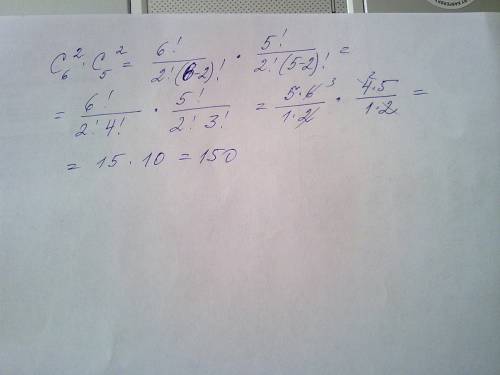 C₆² · C₅² = 6! / 2!(6-2)! · 5! / 2!(5-2)! =
= 6! / 2! 4! · 5! / 2! 3! = 5·6 3 / 1·2 · 4·5 2 / 1·2 =
= 15 · 10 = 150